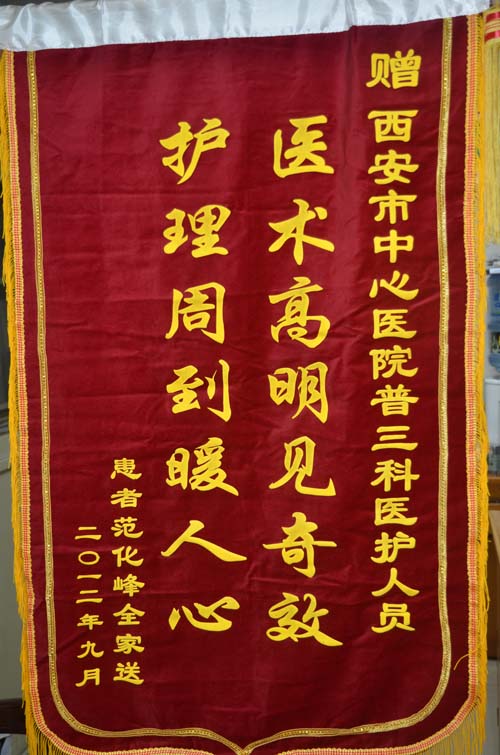 赠 西安市中心医院普三科医护人员
医术高明见奇效
护理周到暖人心
患者范化峰全家送
二〇一二年九月